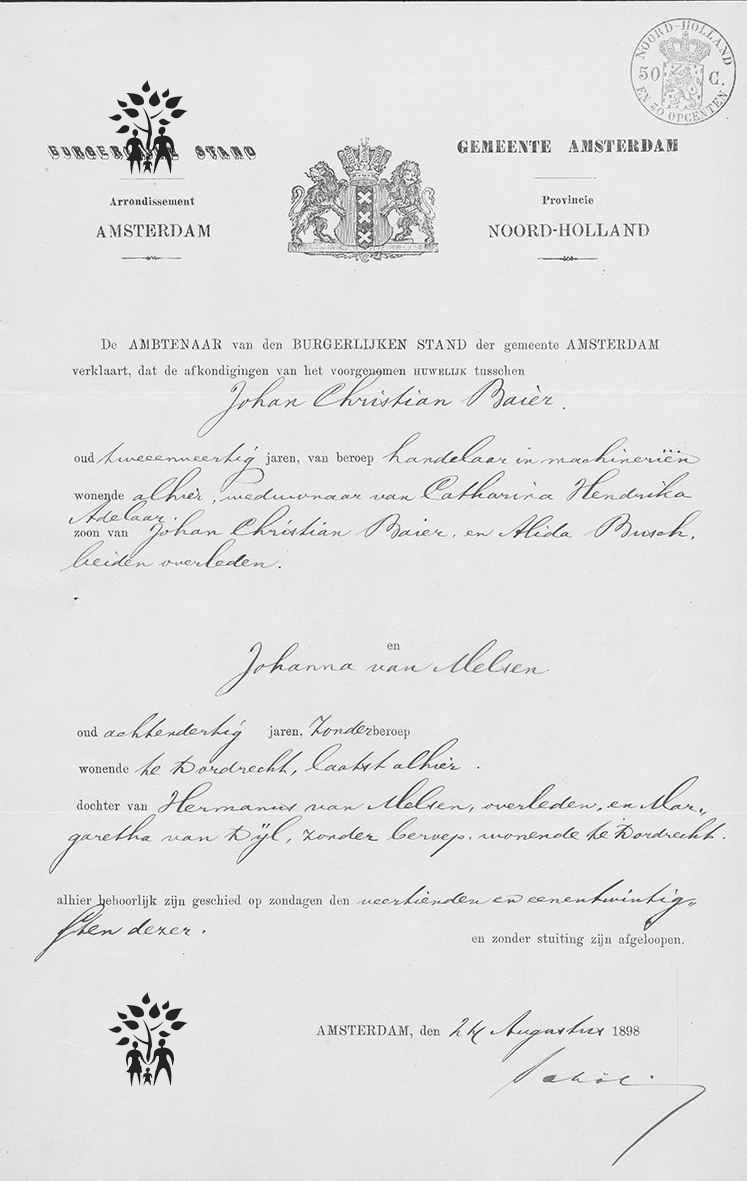 NOORD-HOLLAND
50 C.
EN 50 OPCENTEN
BURGERLIJKE STAND
GEMEENTE AMSTERDAM
Arrondissement
AMSTERDAM
Provincie
NOORD-HOLLAND
De AMBTENAAR van den BURGERLIJKEN STAND der gemeente AMSTERDAM
verklaart, dat de afkondigingen van het voorgenomen HUWELIJK tusschen
Johan Christian Baier.
oud tweeenveertig jaren, van beroep handelaar in machineriën
wonende alhier, weduwnaar van Catharina Hendrika
Adelaar.
zoon van Johan Christian Baier, en Alida Busch,
beiden overleden.
en
Johanna van Melsen
oud achtendertig jaren, zonder beroep
wonende te Dordrecht, laatst alhier.
dochter van Hermanus van Melsen, overleden, en Mar„
garetha van Dijl, zonder beroep, wonende te Dordrecht.
alhier behoorlijk zijn geschied op zondagen den veertienden en eenentwintig„
sten dezer.
en zonder stuiting zijn afgeloopen.
AMSTERDAM, den 24 Augustus 1898